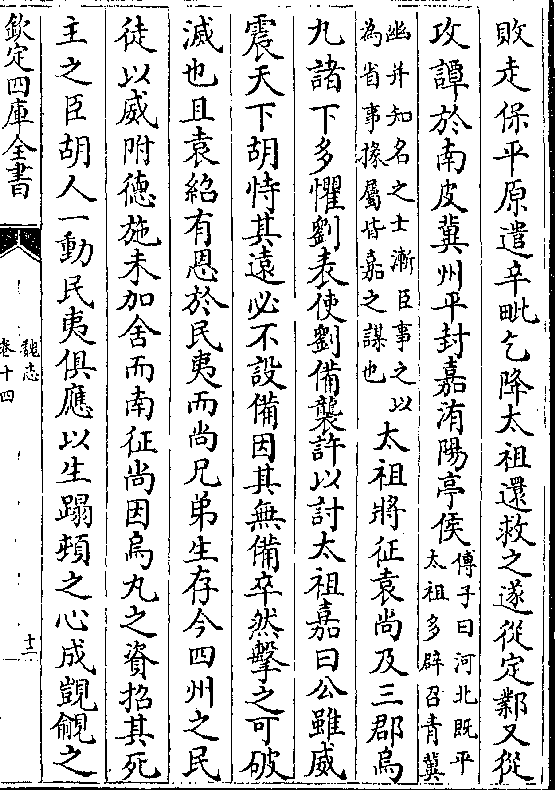 敗走保平原遣辛毗乞降太祖還救之遂從定鄴又從
攻譚於南皮冀州平封嘉洧陽亭侯
傅子曰河北既平
太祖多辟召青冀
幽并知名之士漸臣事之以
為省事掾屬皆嘉之謀也
太祖將征袁尚及三郡烏
九諸下多懼劉表使劉備襲許以討太祖嘉曰公雖威
震天下胡恃其遠必不設備因其無備卒然擊之可破
滅也且袁紹有恩於民夷而尚兄弟生存今四州之民
徒以威附德施未加舍而南征尚因烏丸之資招其死
主之臣胡人一動民夷俱應以生蹋頓之心成覬覦之
欽定四庫全書
魏志
卷十四
十二